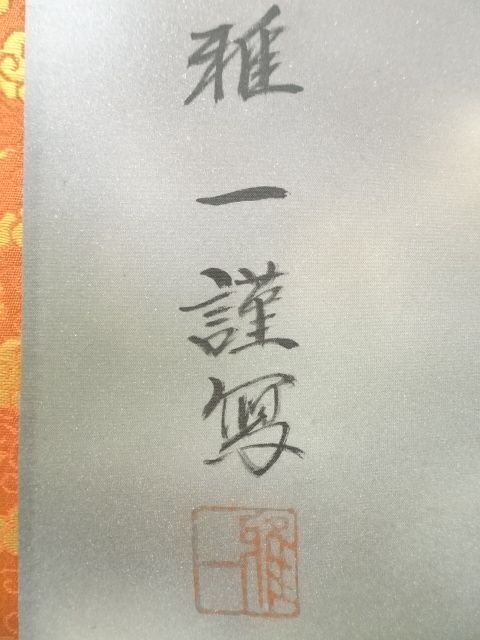 雅一謹写
雅一